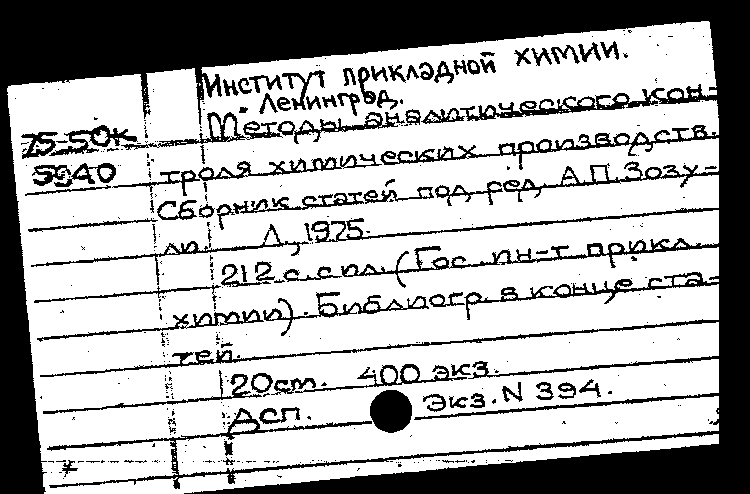 Институт прикладной химии.
Ленинград.
75-50к Методы аналитического кон-
5940 троля химических производств.
Сборник статей под ред. А.П. Зозу-
ли. Л., 1975.
212 с. с ил. (Гос. ин-т прикл.
химии). Библиогр. в конце ста-
тей.
20см. 400 экз.
Дсп. Экз. N 394.